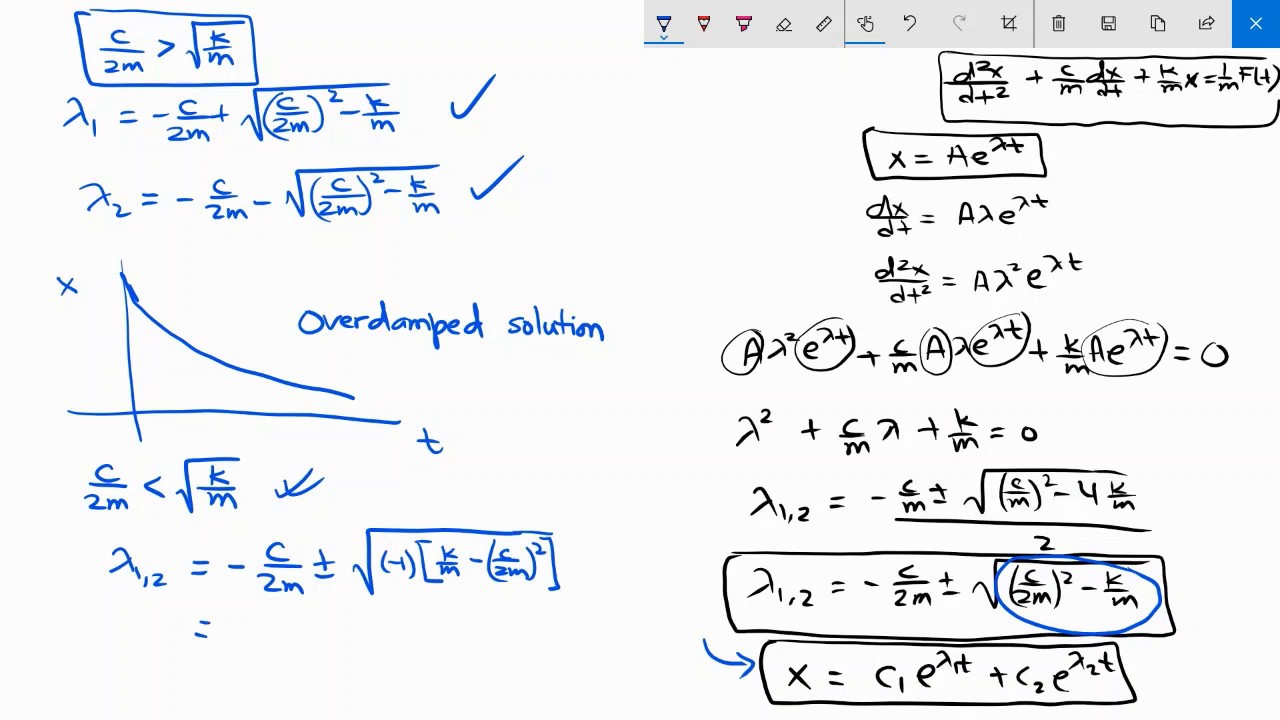 c/2m > √(k/m)
λ₁ = -c/2m + √((c/2m)² - k/m) ✓
λ₂ = -c/2m - √((c/2m)² - k/m) ✓
x
Overdamped solution
t
c/2m < √(k/m) ✓
λ₁,₂ = -c/2m ± √((-1)[k/m - (c/2m)²])
=
d²x/dt² + c/m dx/dt + k/m x = 1/m F(t)
x = Ae^(λt)
dx/dt = Aλe^(λt)
d²x/dt² = Aλ²e^(λt)
Aλ²e^(λt) + c/m Aλe^(λt) + k/m Ae^(λt) = 0
λ² + c/m λ + k/m = 0
λ₁,₂ = (-c/m ± √((c/m)² - 4 k/m))/2
λ₁,₂ = -c/2m ± √((c/2m)² - k/m)
x = c₁e^(λ₁t) + c₂e^(λ₂t)